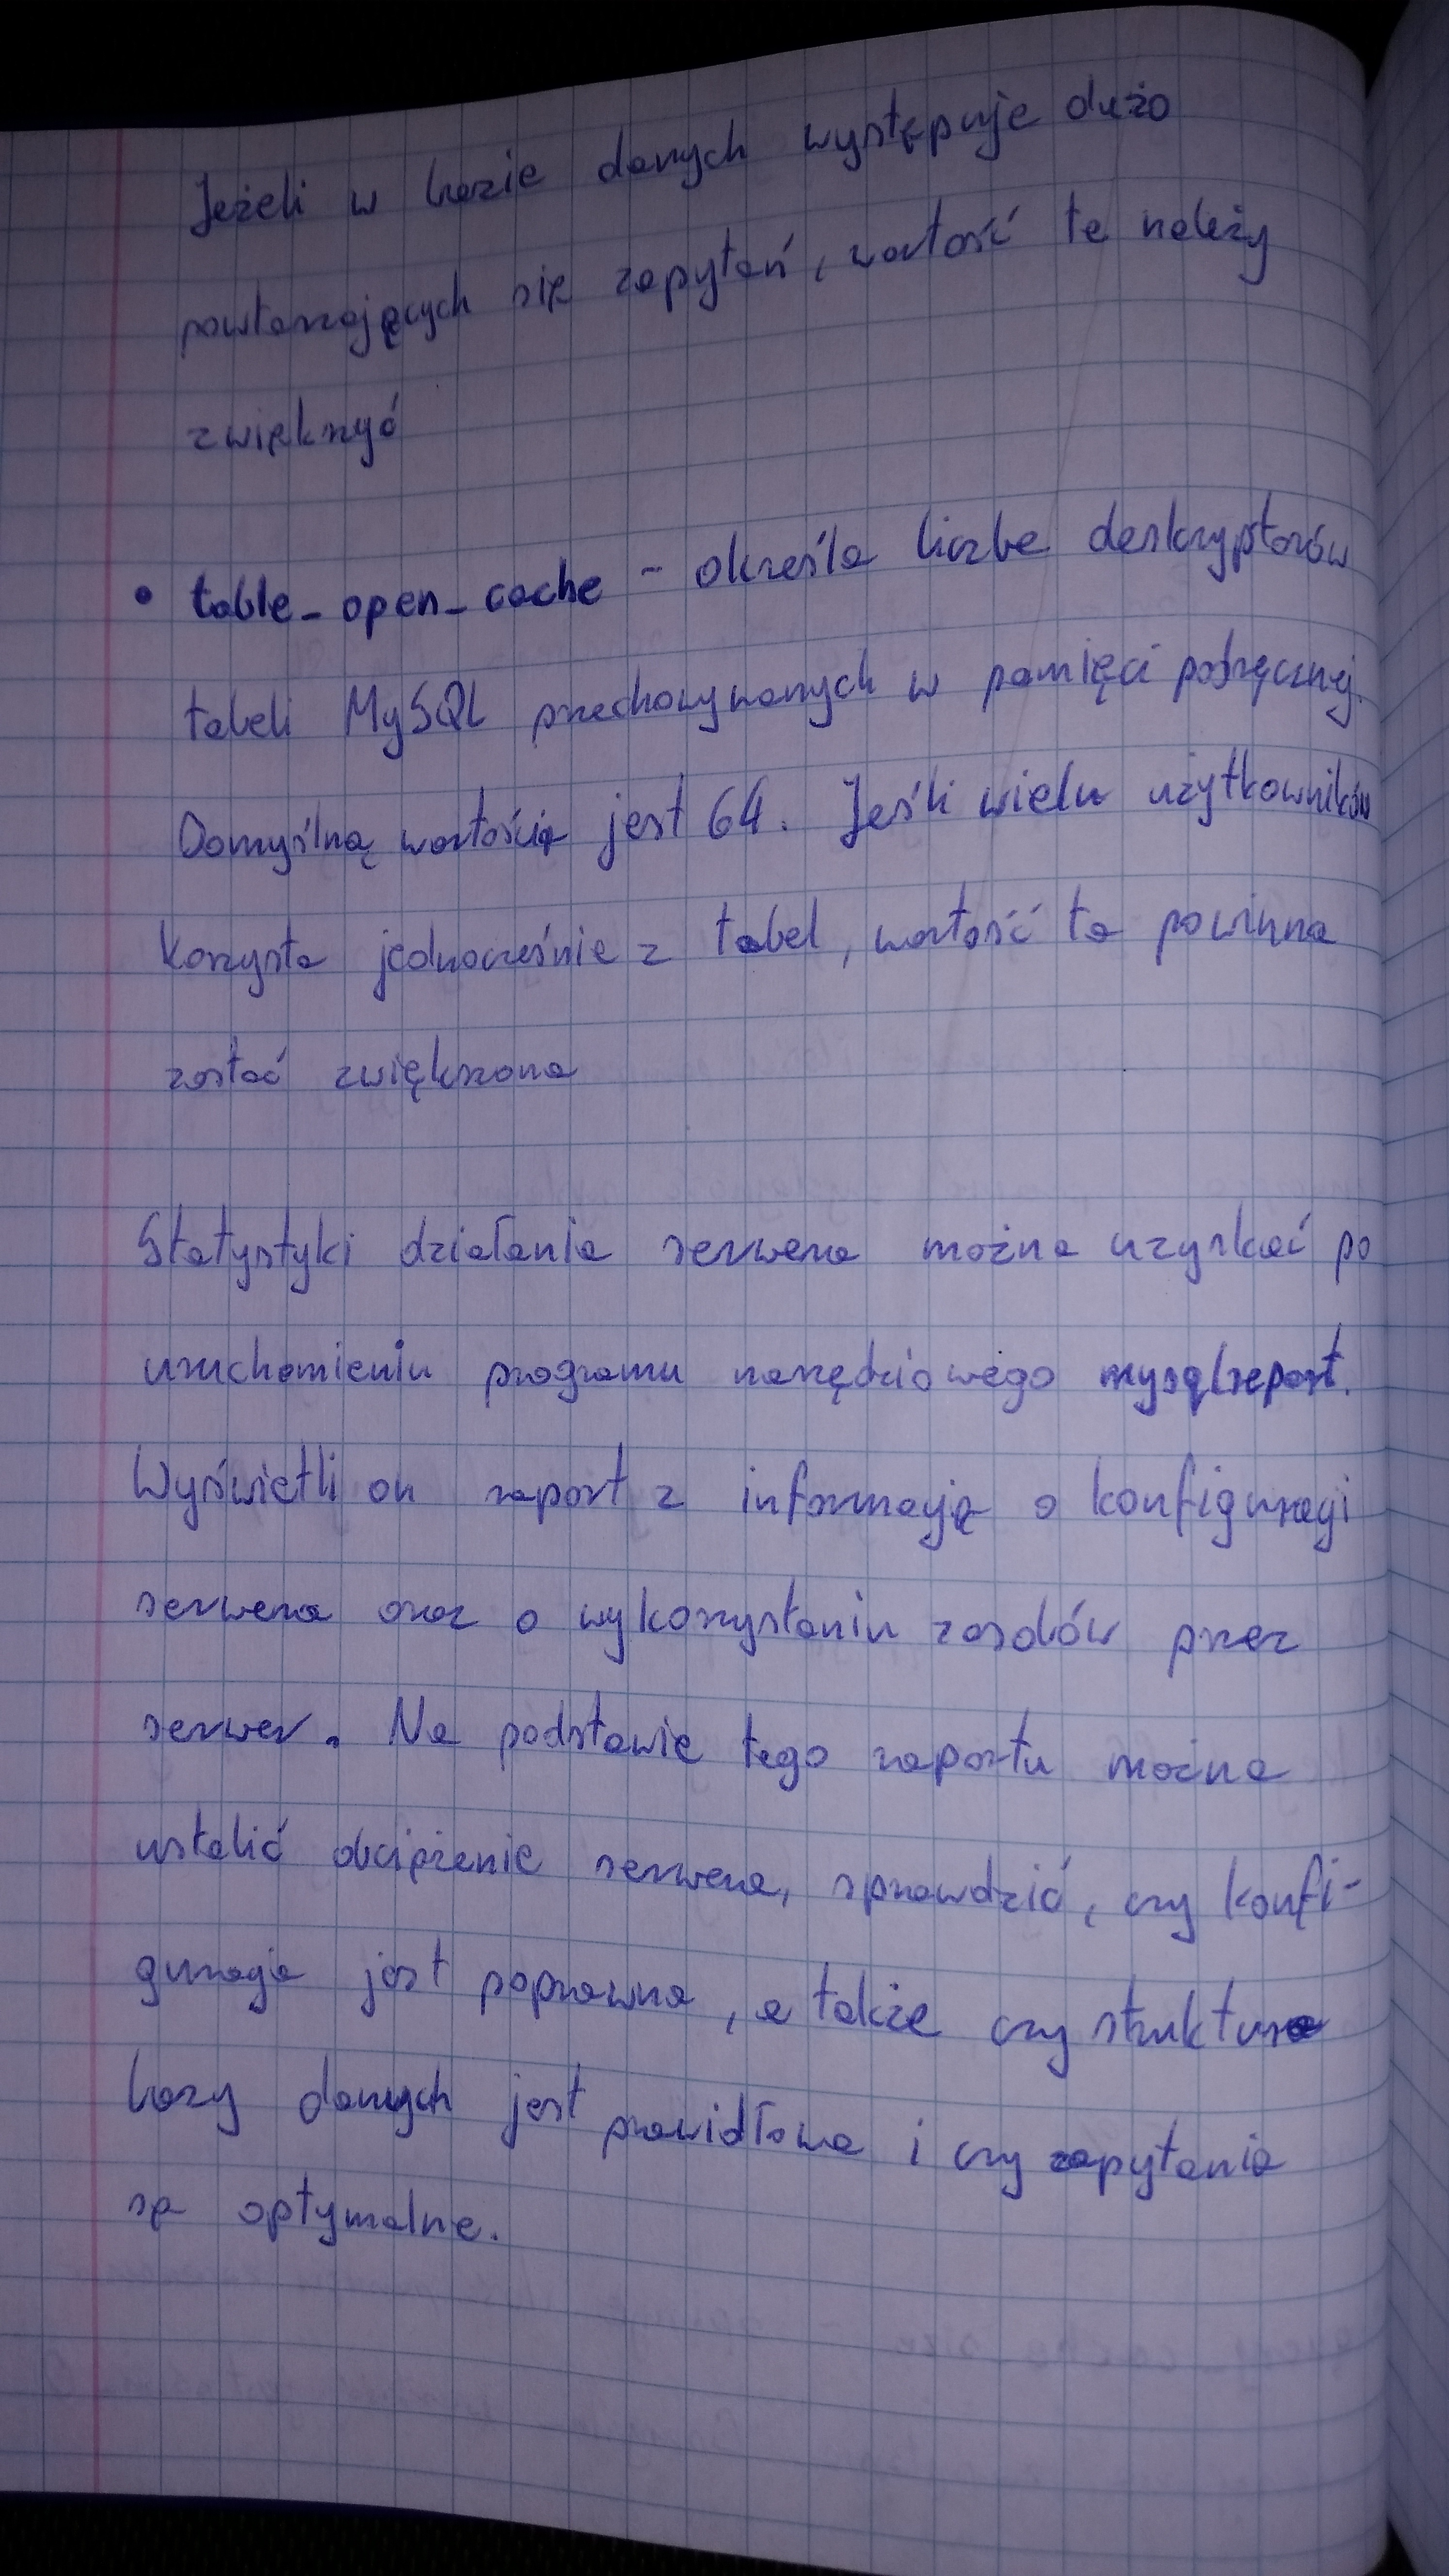 Jeżeli w bazie danych występuje dużo
powtarzających się zapytań, wartość tę należy
zwiększyć
• table_open_cache - określa liczbę deskryptorów
tabeli MySQL przechowywanych w pamięci podręcznej.
Domyślną wartością jest 64. Jeśli wielu użytkowników
korzysta jednocześnie z tabel, wartość ta powinna
zostać zwiększona
Statystyki działania serwera można uzyskać po
uruchomieniu programu narzędziowego mysqlreport.
Wyświetli on raport z informacją o konfiguracji
serwera oraz o wykorzystaniu zasobów przez
serwer. Na podstawie tego raportu można
ustalić obciążenie serwera, sprawdzić, czy konfi-
guracja jest poprawna, a także czy struktura
bazy danych jest prawidłowa i czy zapytania
są optymalne.